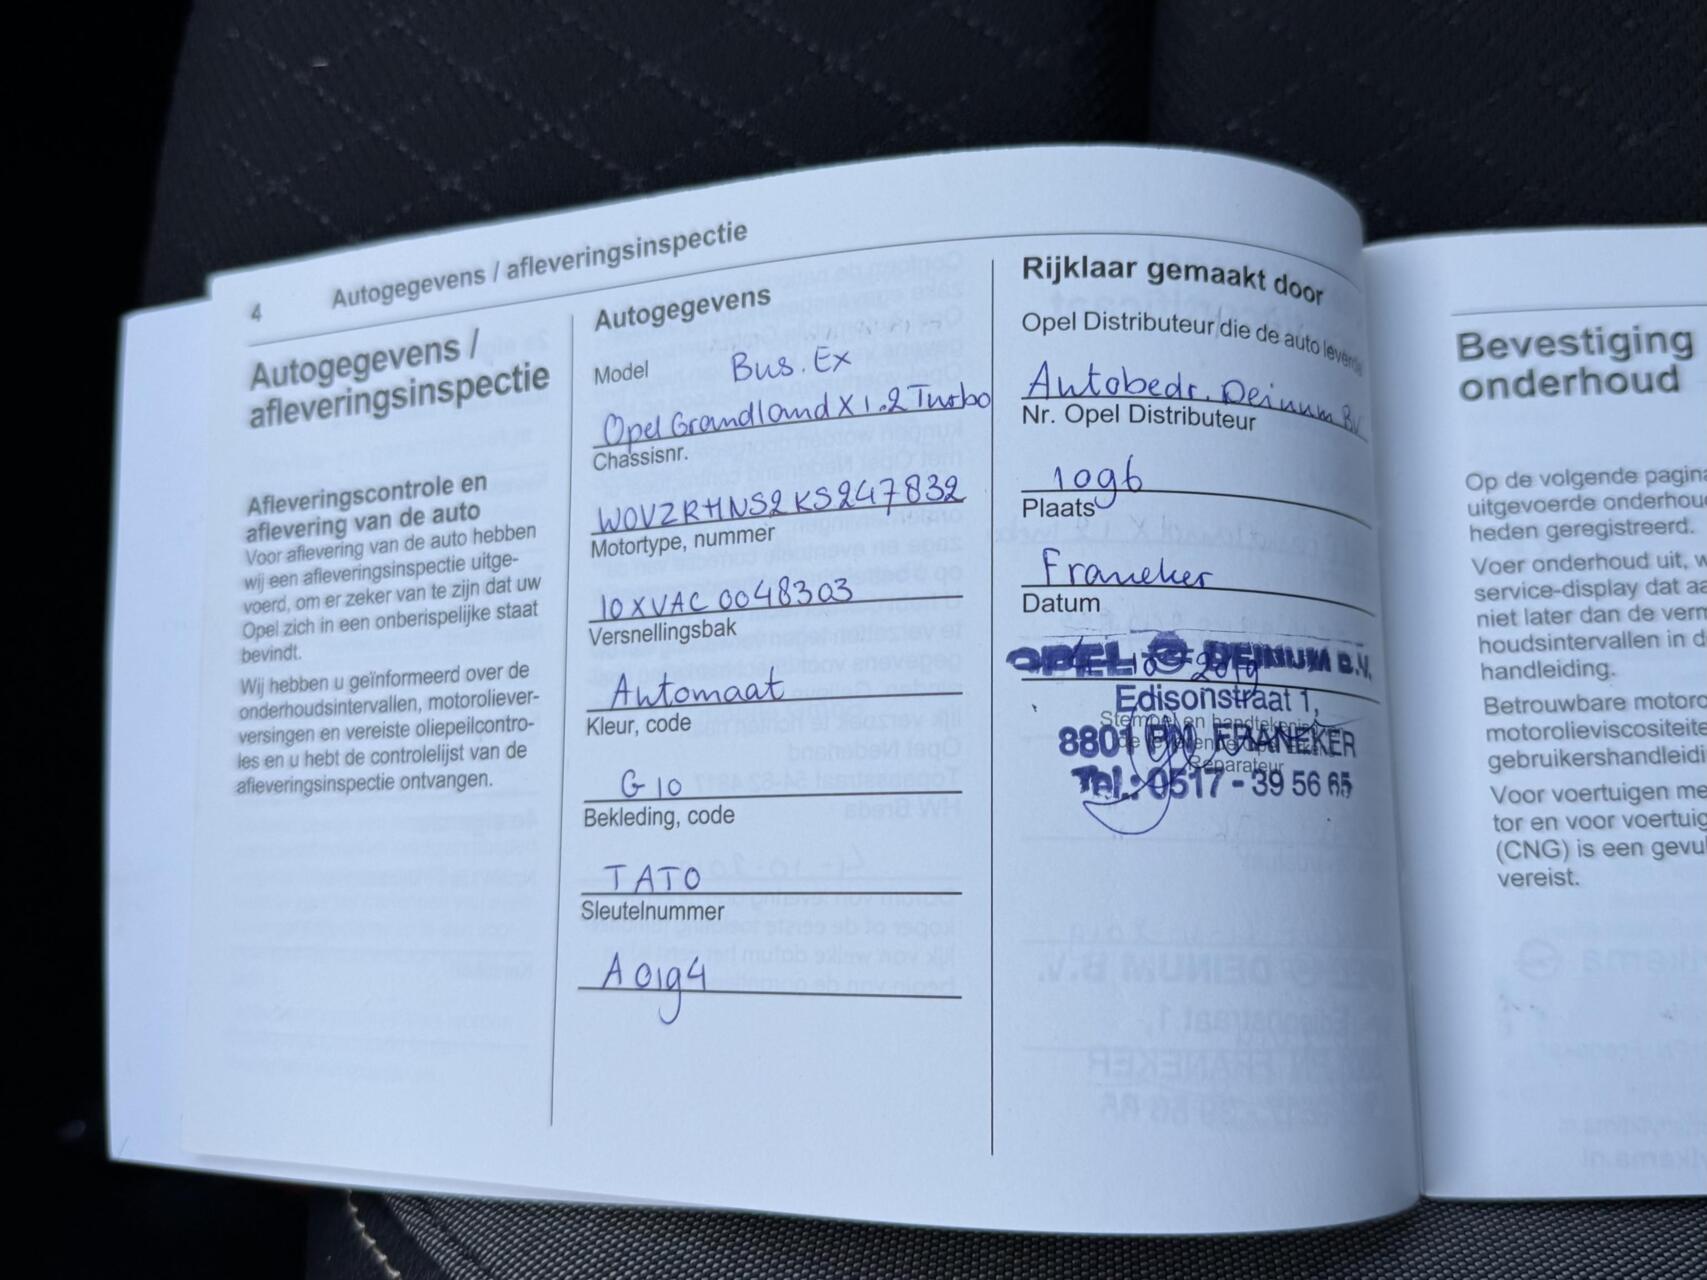 4
Autogegevens / afleveringsinspectie
Autogegevens /
afleveringsinspectie
Afleveringscontrole en
aflevering van de auto
Voor aflevering van de auto hebben
wij een afleveringsinspectie uitge-
voerd, om er zeker van te zijn dat uw
Opel zich in een onberispelijke staat
bevindt.
Wij hebben u geïnformeerd over de
onderhoudsintervallen, motoroliever-
versingen en vereiste oliepeilcontro-
les en u hebt de controlelijst van de
afleveringsinspectie ontvangen.
Autogegevens
Bus. Ex
Model
Opel Grandland X 1.2 Turbo
Chassisnr.
W0VZRHNS2KS247832
Motortype, nummer
10XVAC 0048303
Versnellingsbak
Automaat
Kleur, code
G10
Bekleding, code
TATO
Sleutelnummer
A0194
Rijklaar gemaakt door
Opel Distributeur die de auto leverde
Autobedr. Deinum BV
Nr. Opel Distributeur
1096
Plaats
Franeker
Datum
10-2019
OPEL DEINUM B.V.
Edisonstraat 1,
Stempel en
8801 PN FRANEKER
Reparateur
Tel.: 0517 - 39 56 65
Bevestiging
onderhoud
Op de volgende pagina
uitgevoerde onderhou
heden geregistreerd.
Voer onderhoud uit, w
service-display dat aa
niet later dan de verm
houdsintervallen in d
handleiding.
Betrouwbare motoro
motorolieviscositeite
gebruikershandleidi
Voor voertuigen me
tor en voor voertuig
(CNG) is een gevul
vereist.